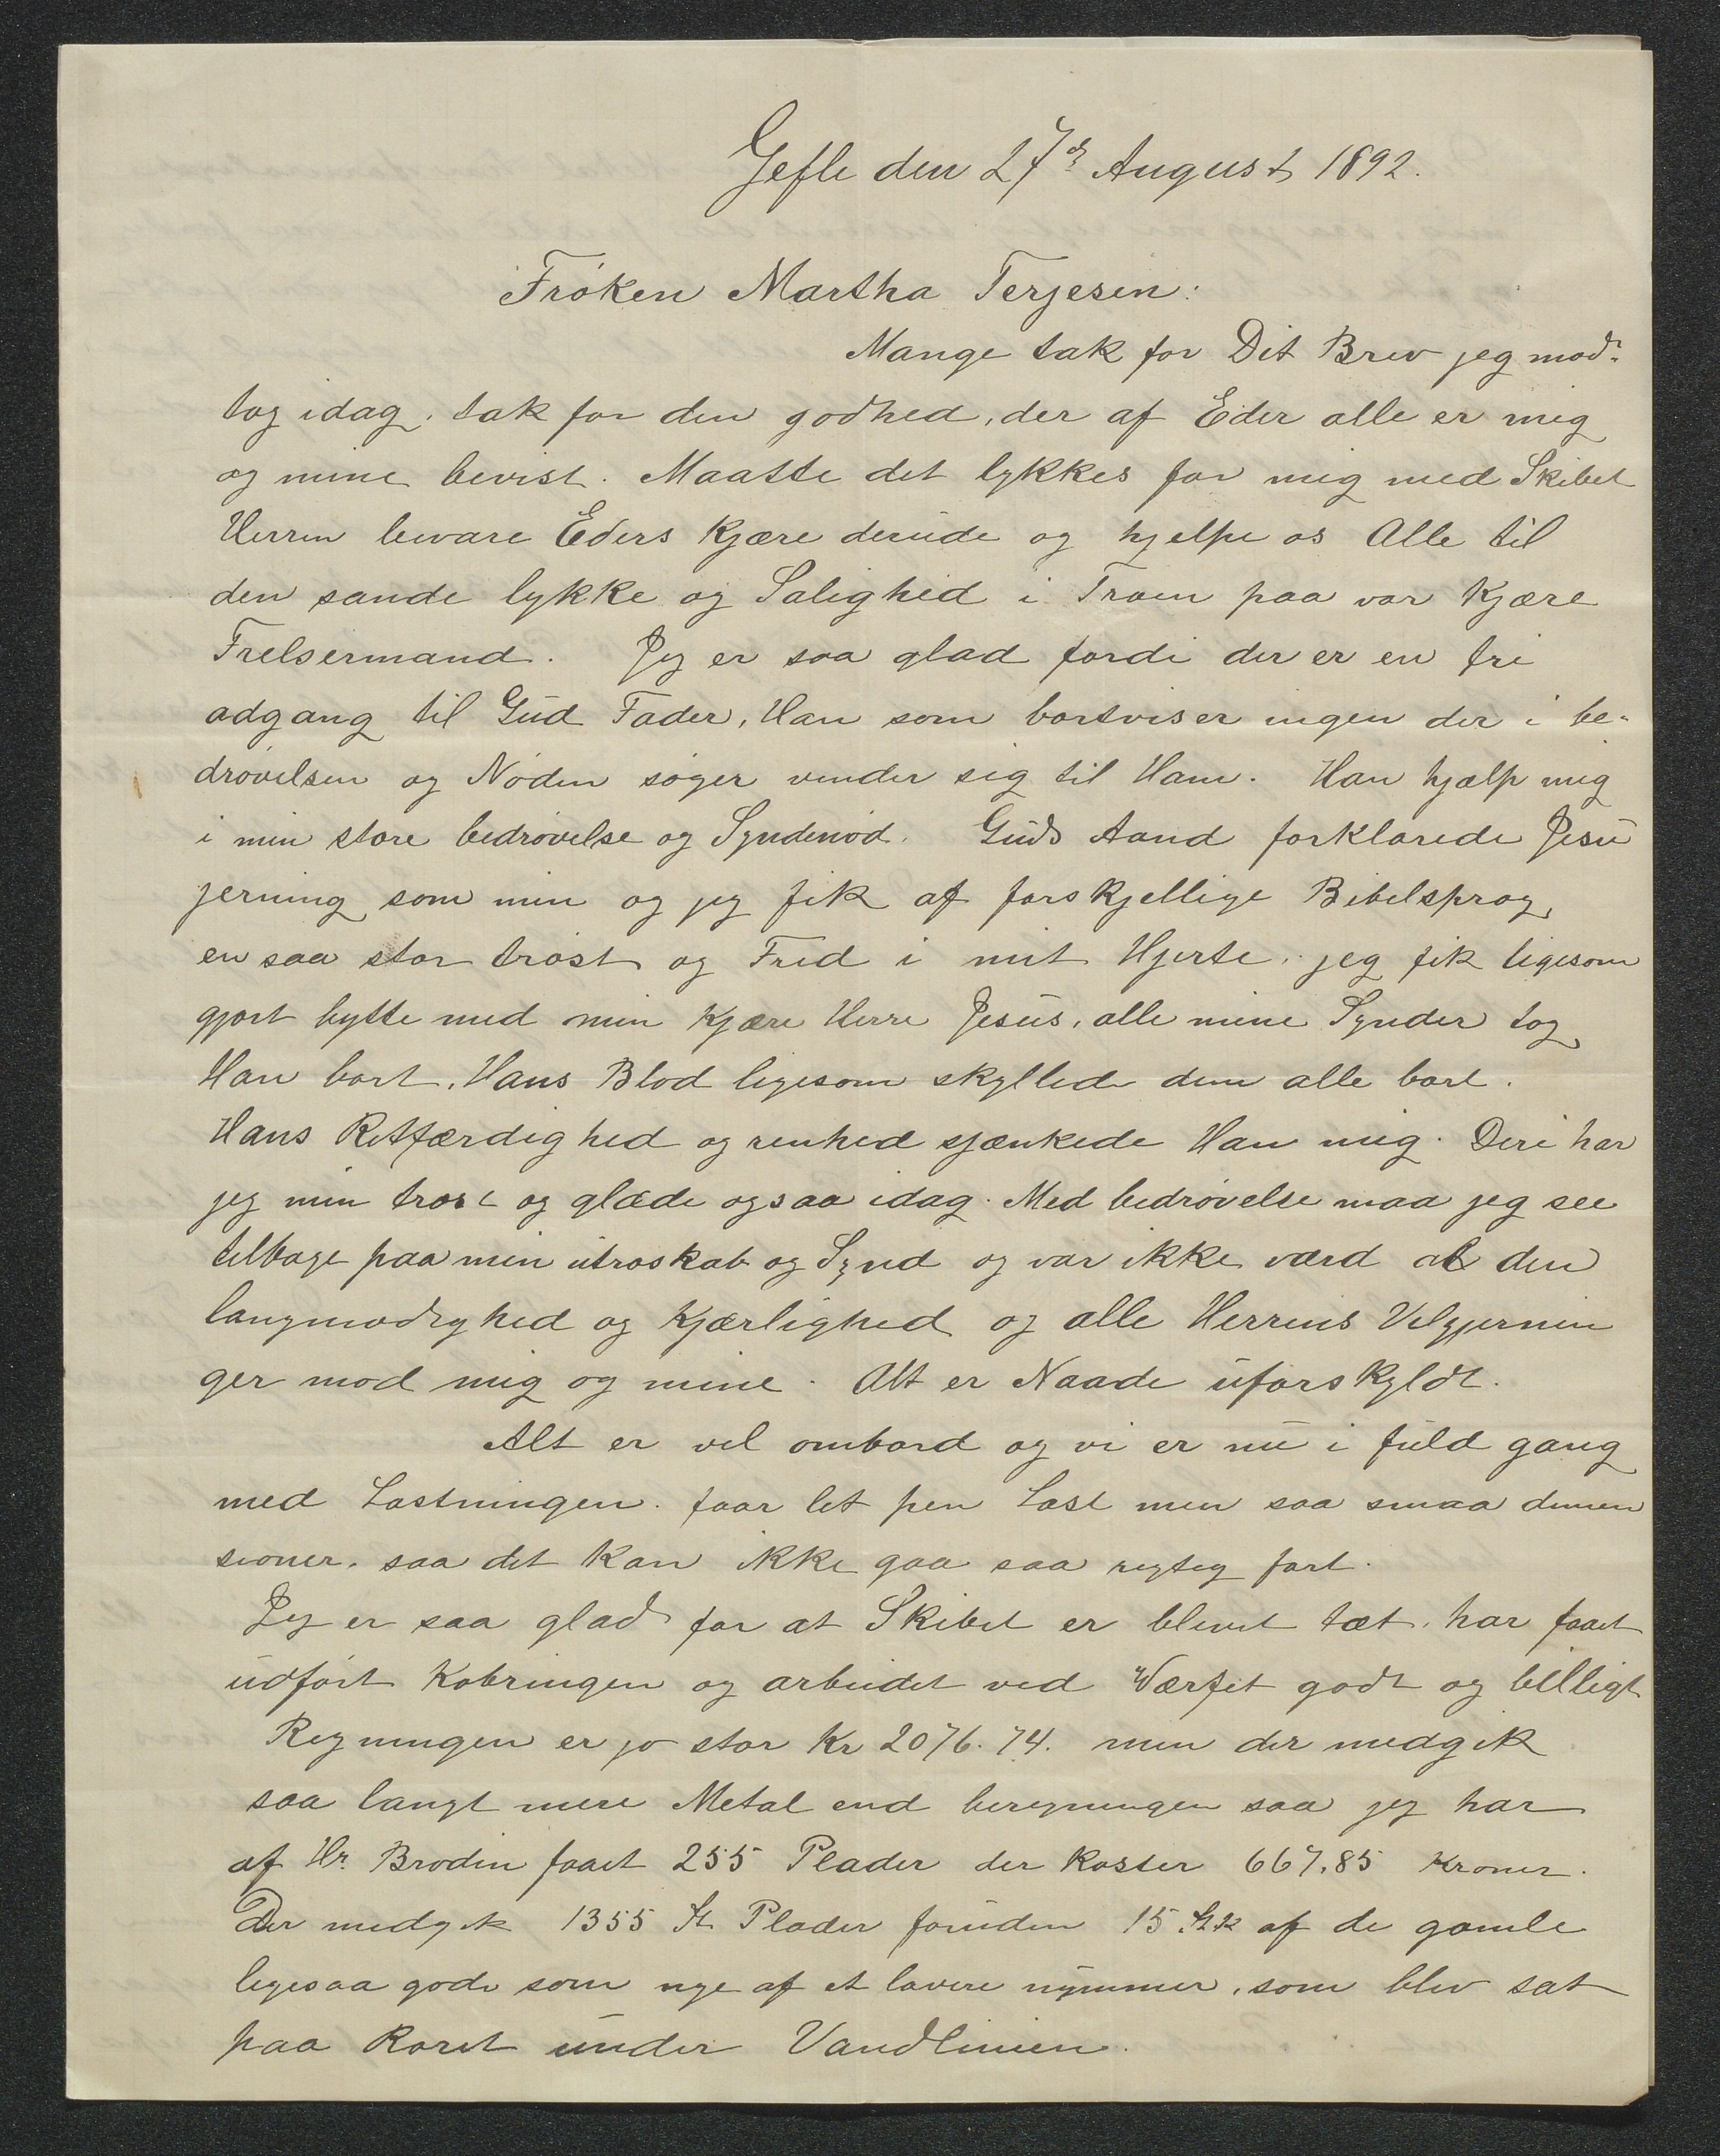 Gefle den 27de August 1892.
Frøken Martha Terjesen:
Mange tak for Dit Brev jeg mod-
tog idag, tak for den godhed, der af Eder alle er mig
og mine bevist. Maatte det lykkes for mig med Skibet
Herren bevare Eders kjære derude og hjelpe os Alle til
den sande lykke og Salighed i Troen paa vor kjære
Frelsermand. Jeg er saa glad fordi der er en fri
adgang til Gud Fader, Han som bortviser ingen der i be-
drøvelsen og Nøden søger vender sig til Ham. Han hjælp mig
i min store bedrøvelse og Syndenød. Guds Aand forklarede Jesu
jerning som min og jeg fik af forskjellige Bibelsprog,
en saa stor trøst og Fred i mit Hjerte, jeg fik ligesom
gjort bytte med min kjære Herre Jesus, alle mine Synder tog
Han bort, Hans Blod ligesom skyllede dem alle bort.
Hans Retfærdighed og renhed sjænkede Han mig. Deri har
jeg min trøst og glæde ogsaa idag. Med bedrøvelse maa jeg see
tilbage paa min utroskab og Synd og var ikke værd al den
langmodighed og kjærlighed og alle Herrens Velgjernin
ger mod mig og mine. Alt er Naade uforskyldt.
Alt er vel ombord og vi er nu i fuld gang
med Lastningen. faar let pen Last men saa smaa dimen
sioner, saa det kan ikke gaa saa rigtig fort.
Jeg er saa glad for at Skibet er blevet tæt, har faaet
udført Kobringen og arbeidet ved Værfet godt og billigt
Regningen er jo stor Kr 2076.74. men der medgik
saa langt mere Metal end beregningen saa jeg har
af Hr. Brodin faaet 255 Plader der koster 667,85 Kroner.
Der medgik 1355 St. Plader foruden 15 Stk af de gamle
ligesaa gode som nye af et lavere nummer, som blev sat
paa Roret under Vandlinien.